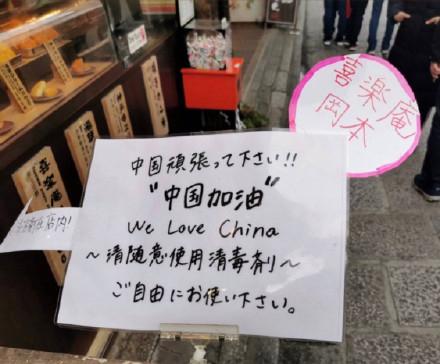 喜楽庵
岡本
中国頑張って下さい!!
"中国加油"
We Love China
～清随意使用消毒剤～
ご自由にお使い下さい。